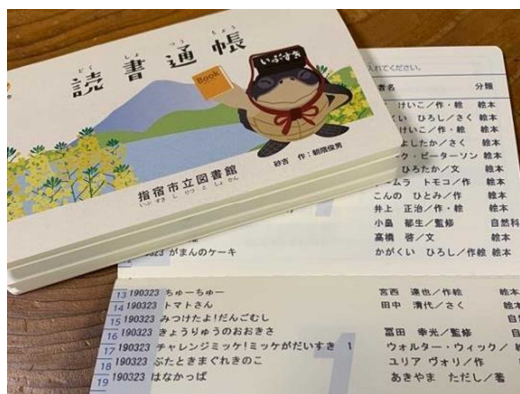 どくしょつうちょう
読書通帳
いぶすき
Book
指宿市立図書館
いぶすきしりつとしょかん
砂吉 作:朝隈俊男
入れてください。
者名 分類
けいこ/作・絵 絵本
く ひろし/さく 絵本
けいこ/作・絵 絵本
よしたか/さく 絵本
ック・ピーターソン 絵本
ひろたか/文 絵本
ームラ トモコ/作 絵本
こんの ひとみ/作 絵本
井上 正治/作・絵 絵本
小畠 郁生/監修 自然科
高橋 啓/文 絵本
323 がまんのケーキ かがくい ひろし/作絵 絵本
13 190323 ちゅーちゅー 宮西 達也/作絵 絵本
14 190323 トマトさん 田中 清代/さく 絵本
15 190323 みつけたよ!だんごむし 自然
16 190323 きょうりゅうのおおきさ 冨田 幸光/監修 自然
17 190323 チャレンジミッケ!ミッケがだいすき 1 ウォルター・ウィック/ 絵
18 190323 ぶたときまぐれきのこ ユリア ヴォリ/作
19 190323 はなかっぱ あきやま ただし/著